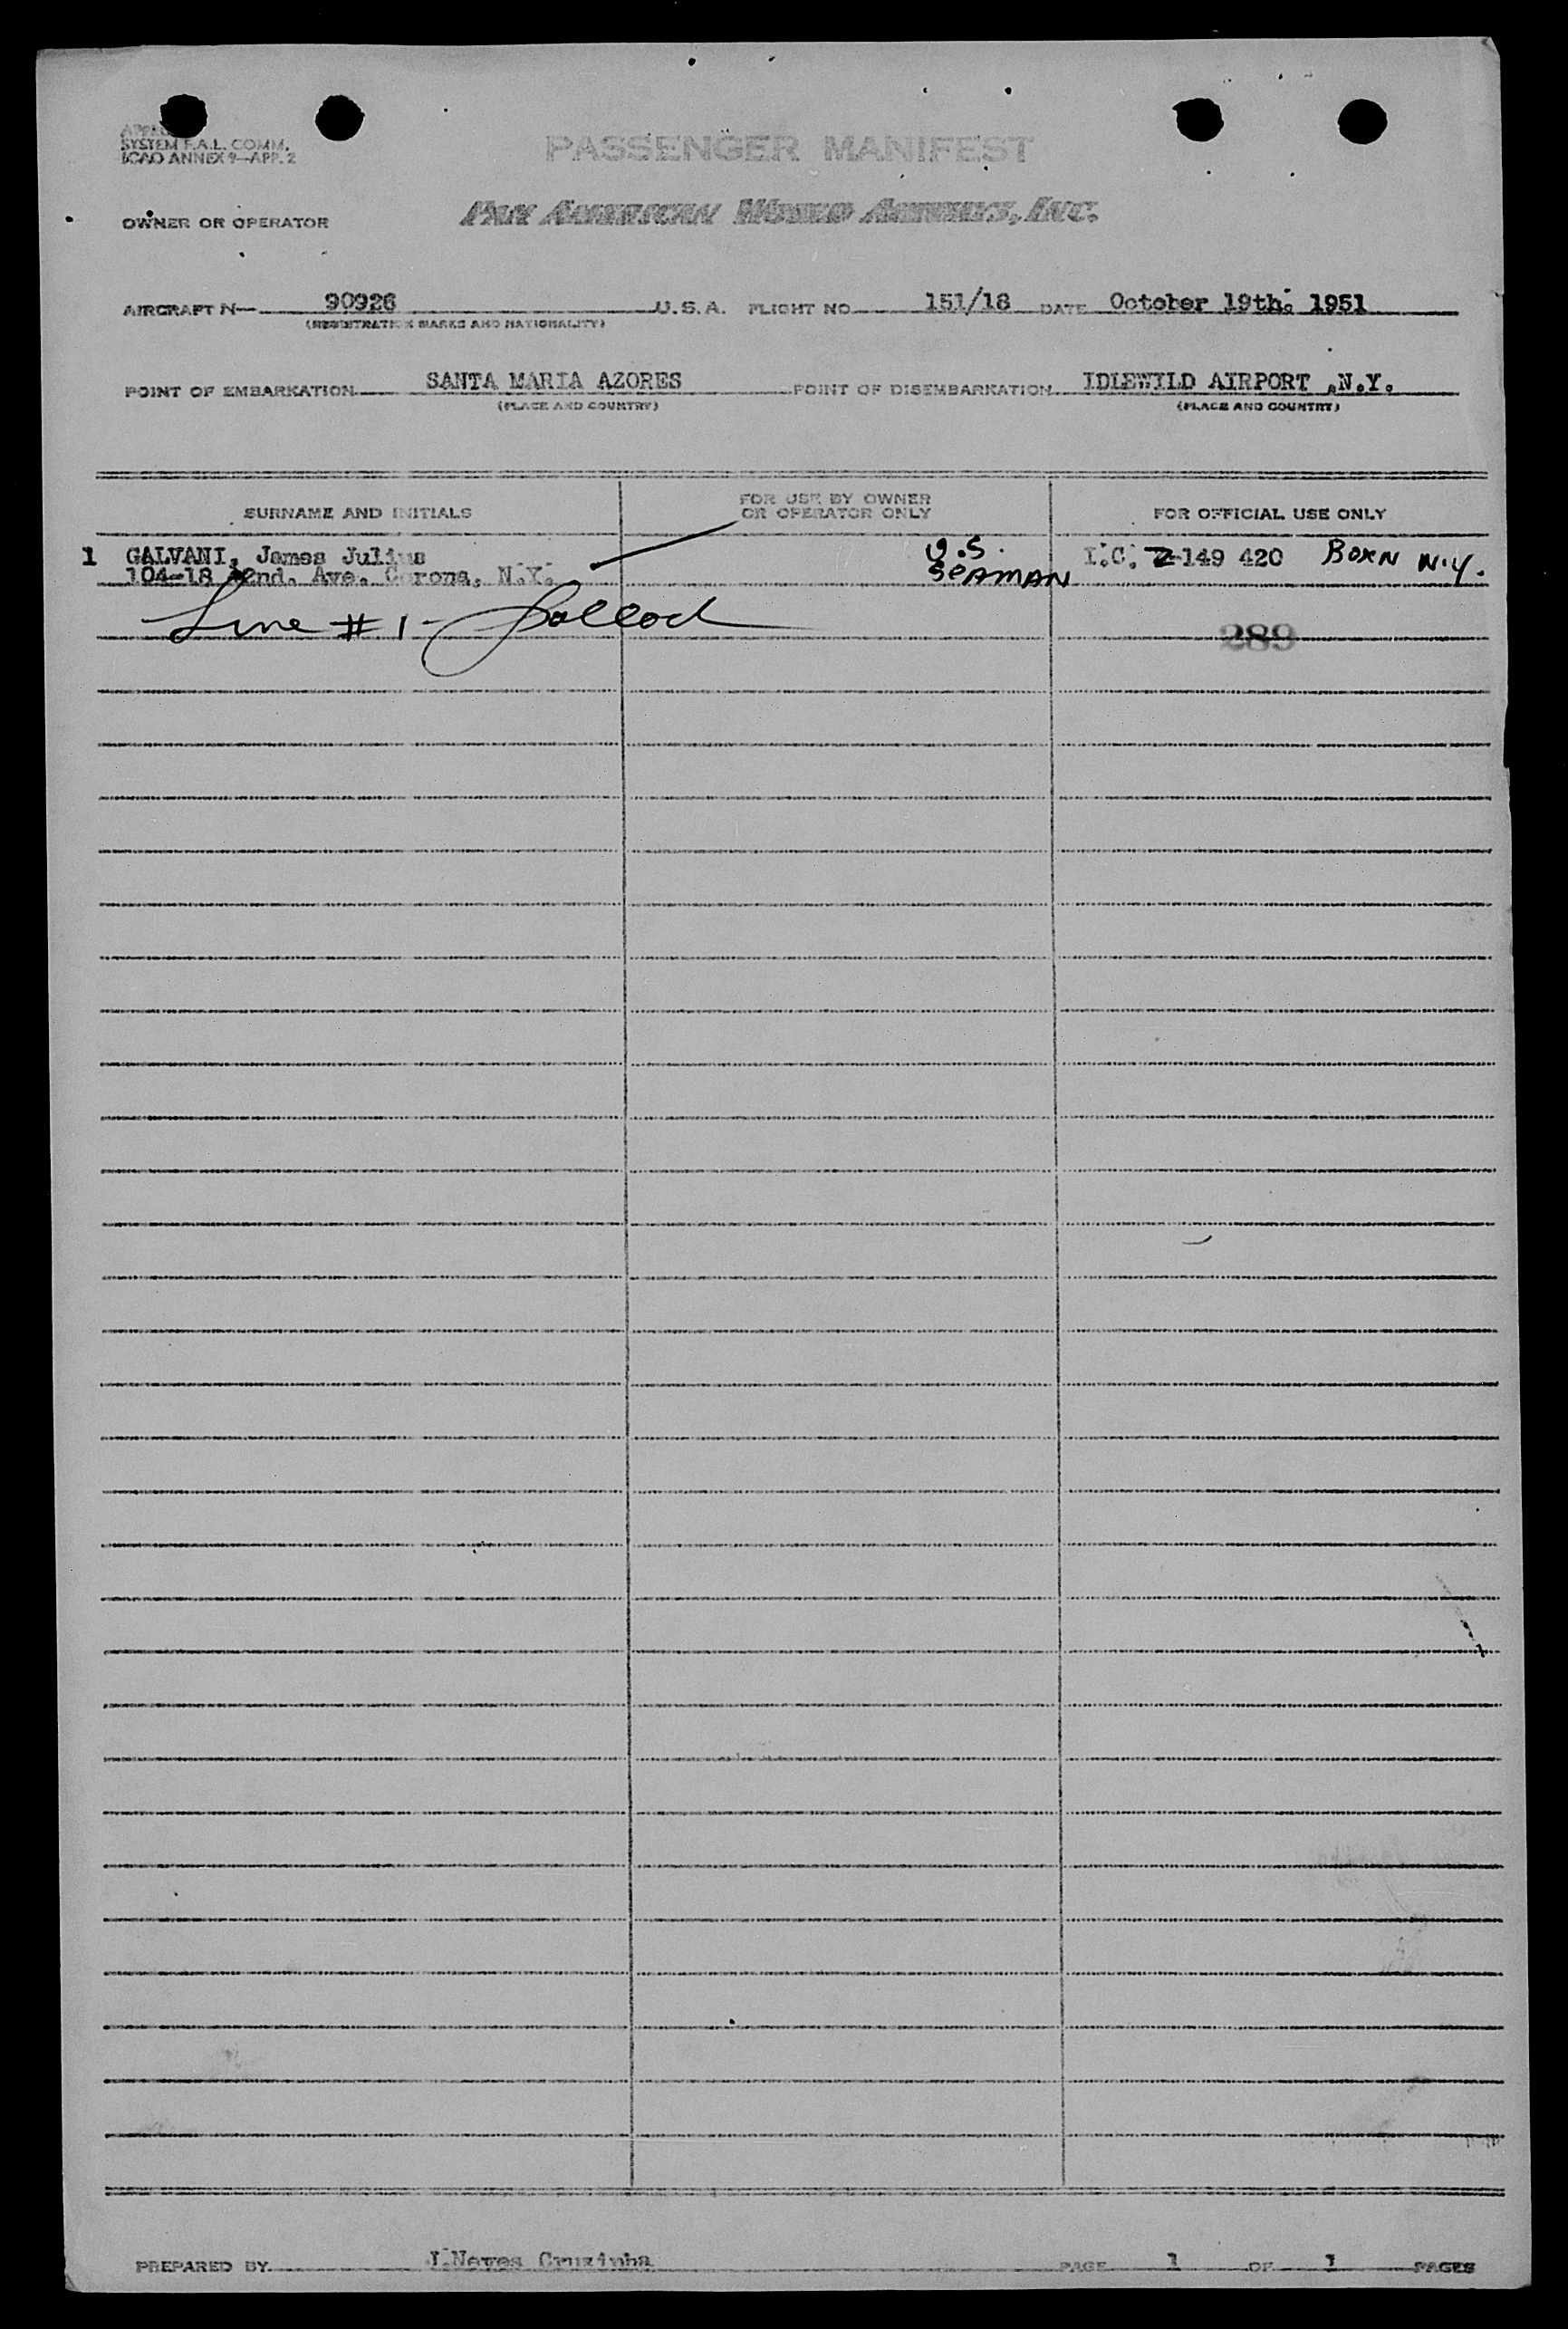 SYSTEM F.A.L. COMM.
ICAO ANNEX 9—APP. 2
PASSENGER MANIFEST
OWNER OR OPERATOR
PAN AMERICAN WORLD AIRWAYS, INC.
AIRCRAFT N— 90926 U.S.A. FLIGHT NO 151/18 DATE October 19th. 1951
(REGISTRATION MARKS AND NATIONALITY)
POINT OF EMBARKATION SANTA MARIA AZORES POINT OF DISEMBARKATION IDLEWILD AIRPORT ,N.Y.
(PLACE AND COUNTRY) (PLACE AND COUNTRY)
SURNAME AND INITIALS
FOR USE BY OWNER
OR OPERATOR ONLY
FOR OFFICIAL USE ONLY
1 GALVANI, James Julius U.S. I.C. Z-149 420 BORN N.Y.
104-18 42nd. Ave. Corona, N.Y. SEAMAN
Line # 1-
289
PREPARED BY J.Neves Cruzinha PAGE 1 OF 1 PAGES